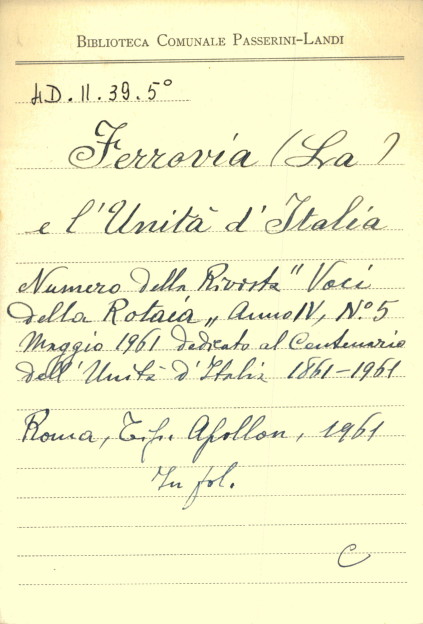 BIBLIOTECA COMUNALE PASSERINI-LANDI
4D.II.39.5°
Ferrovia (La)
e l'Unità d'Italia
Numero della Rivista "Voci
della Rotaia„ Anno IV, N.° 5
Maggio 1961 dedicato al Centenario
dell'Unità d'Italia 1861-1961
Roma, Tip. Apollon, 1961
In fol.
C